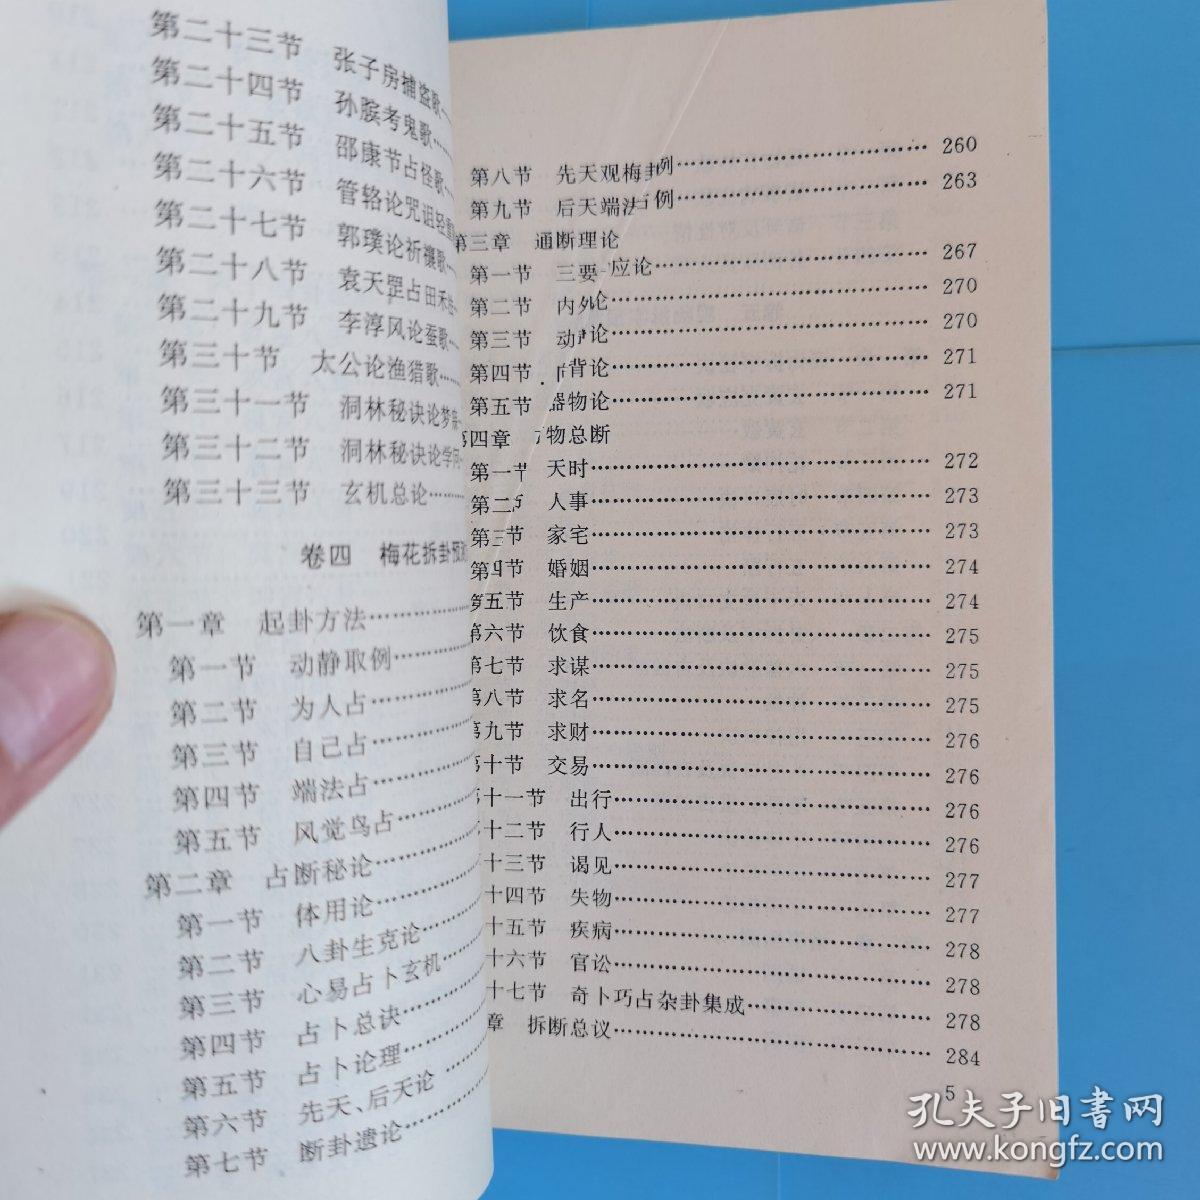 第二十三节 张子房捕盗歌……
第二十四节 孙膑考鬼歌……
第二十五节 邵康节占怪歌……
第二十六节 管辂论咒诅轻重
第二十七节 郭璞论祈禳歌……
第二十八节 袁天罡占田禾
第二十九节 李淳风论蚕歌……
第三十节 太公论渔猎歌……
第三十一节 洞林秘诀论梦
第三十二节 洞林秘诀论学
第三十三节 玄机总论……
卷四 梅花拆卦预
第一章 起卦方法……
第一节 动静取例……
第二节 为人占……
第三节 自己占……
第四节 端法占……
第五节 风觉鸟占……
第二章 占断秘论……
第一节 体用论……
第二节 八卦生克论……
第三节 心易占卜玄机……
第四节 占卜总诀……
第五节 占卜论理……
第六节 先天、后天论……
第七节 断卦遗论……
第八节 先天观梅卦例……260
第九节 后天端法占例……263
第三章 通断理论
第一节 三要 应论……267
第二节 内外论……270
第三节 动 论……270
第四节 背论……271
第五节 器物论……271
第四章 物总断
第一节 天时……272
第二节 人事……273
第三节 家宅……273
第四节 婚姻……274
第五节 生产……274
第六节 饮食……275
第七节 求谋……275
第八节 求名……275
第九节 求财……276
第十节 交易……276
十一节 出行……276
十二节 行人……276
十三节 谒见……277
十四节 失物……277
十五节 疾病……278
十六节 官讼……278
十七节 奇卜巧占杂卦集成……278
章 拆断总议……284
5
孔夫子旧书网
www.kongfz.com